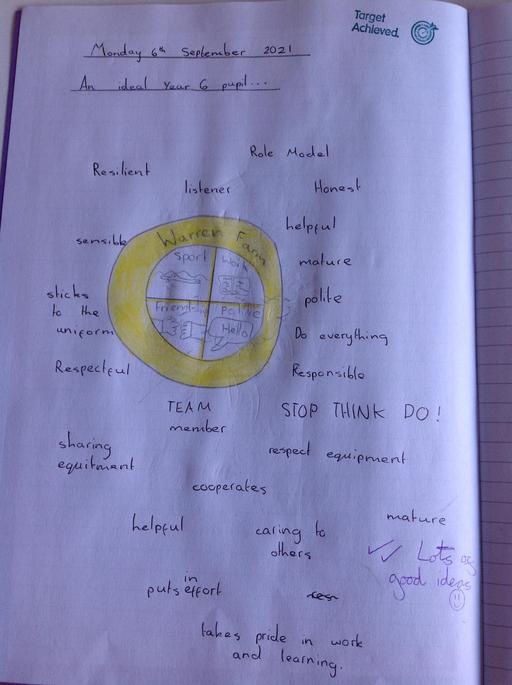 Target
Achieved.
Monday 6th September 2021
An ideal Year 6 pupil...
Role Model
Resilient
listener
Honest
helpful
sensible
Warren Farm
Sport
Work
mature
sticks
to the
uniform
Friendship
Polite
Hello
polite
Do everything
Respectful
Responsible
TEAM
member
STOP THINK DO!
sharing
equitment
respect equipment
cooperates
helpful
caring to
others
mature
Lots of
good ideas
in
puts effort
takes pride in work
and learning.